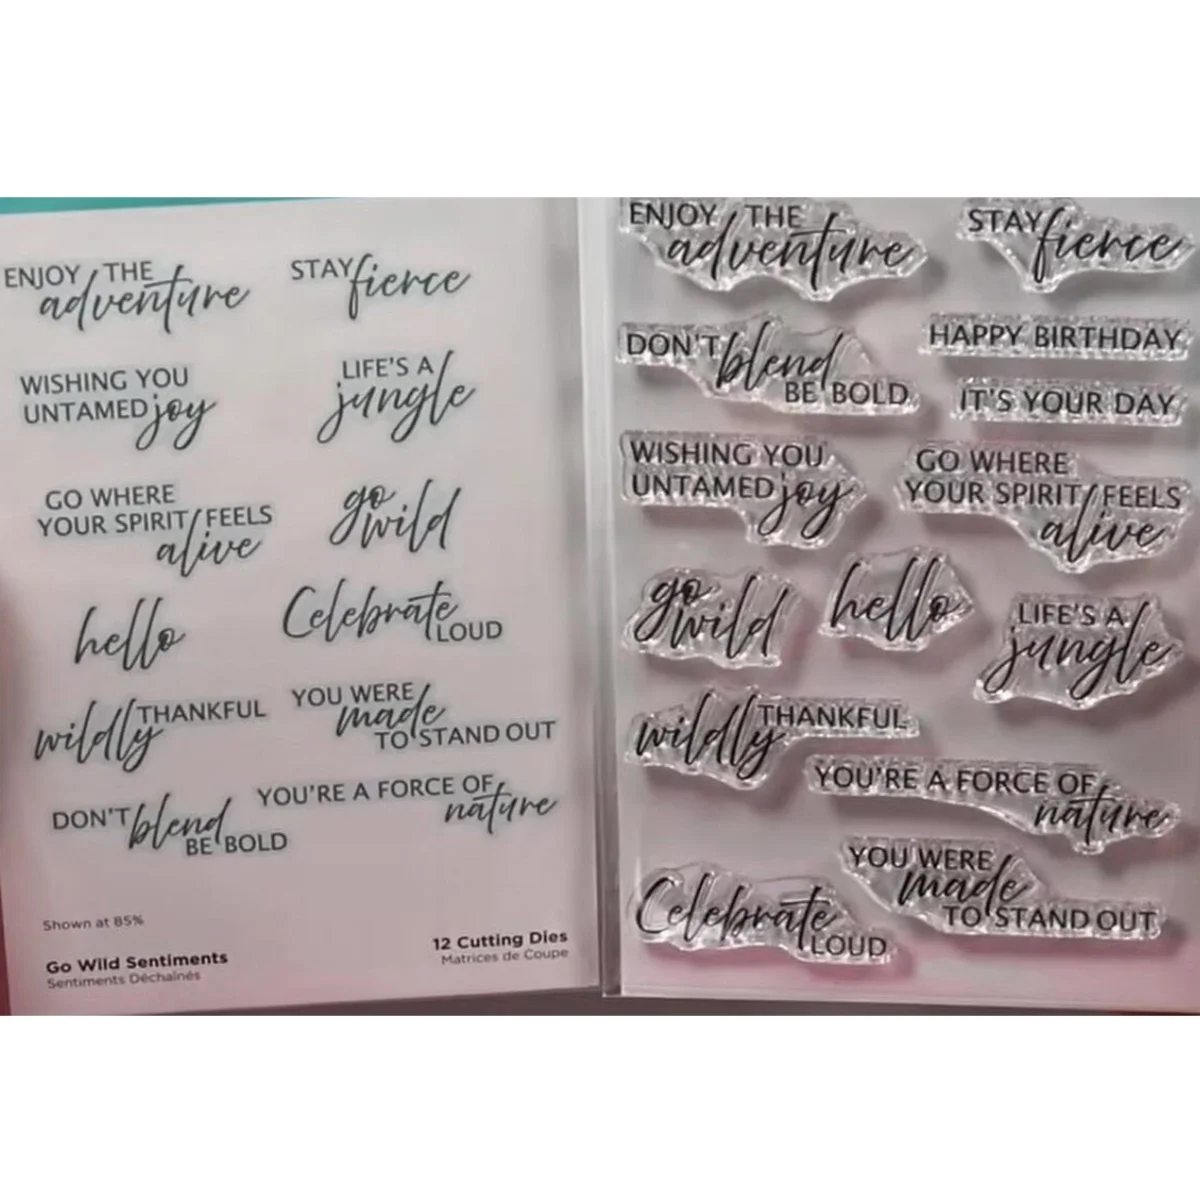 ENJOY THE
adventure
STAY fierce
WISHING YOU
UNTAMED joy
LIFE'S A
jungle
GO WHERE
YOUR SPIRIT FEELS
alive
go
wild
hello
Celebrate
LOUD
wildly THANKFUL
YOU WERE
made
TO STAND OUT
DON'T blend
BE BOLD
YOU'RE A FORCE OF
nature
Shown at 85%
Go Wild Sentiments
Sentiments Déchaînés
12 Cutting Dies
Matrices de Coupe
ENJOY THE
adventure
STAY fierce
DON'T blend
BE BOLD
HAPPY BIRTHDAY
IT'S YOUR DAY
WISHING YOU
UNTAMED joy
GO WHERE
YOUR SPIRIT FEELS
alive
go
wild
hello
LIFE'S A
jungle
wildly THANKFUL
YOU'RE A FORCE OF
nature
YOU WERE
made
TO STAND OUT
Celebrate
LOUD